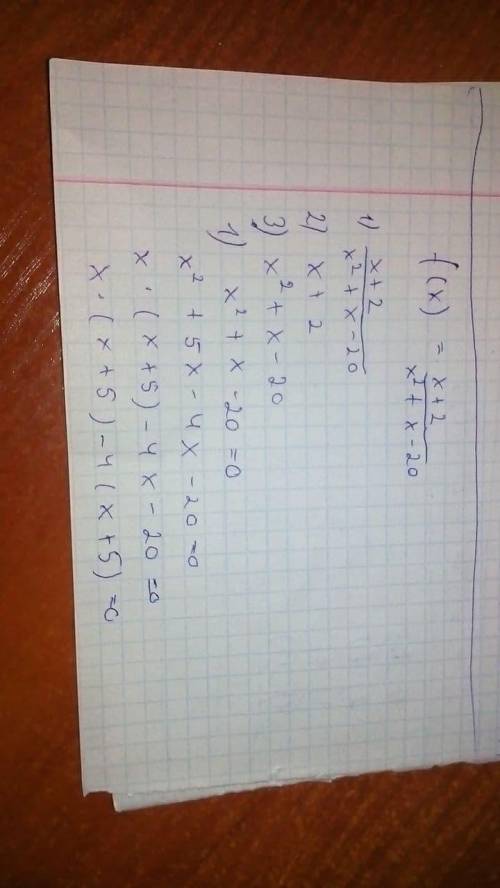 f(x) = x+2 / x²+x-20
1) x+2 / x²+x-20
2) x+2
3) x²+x-20
1) x²+x-20=0
x²+5x-4x-20=0
x·(x+5)-4x-20=0
x·(x+5)-4(x+5)=0